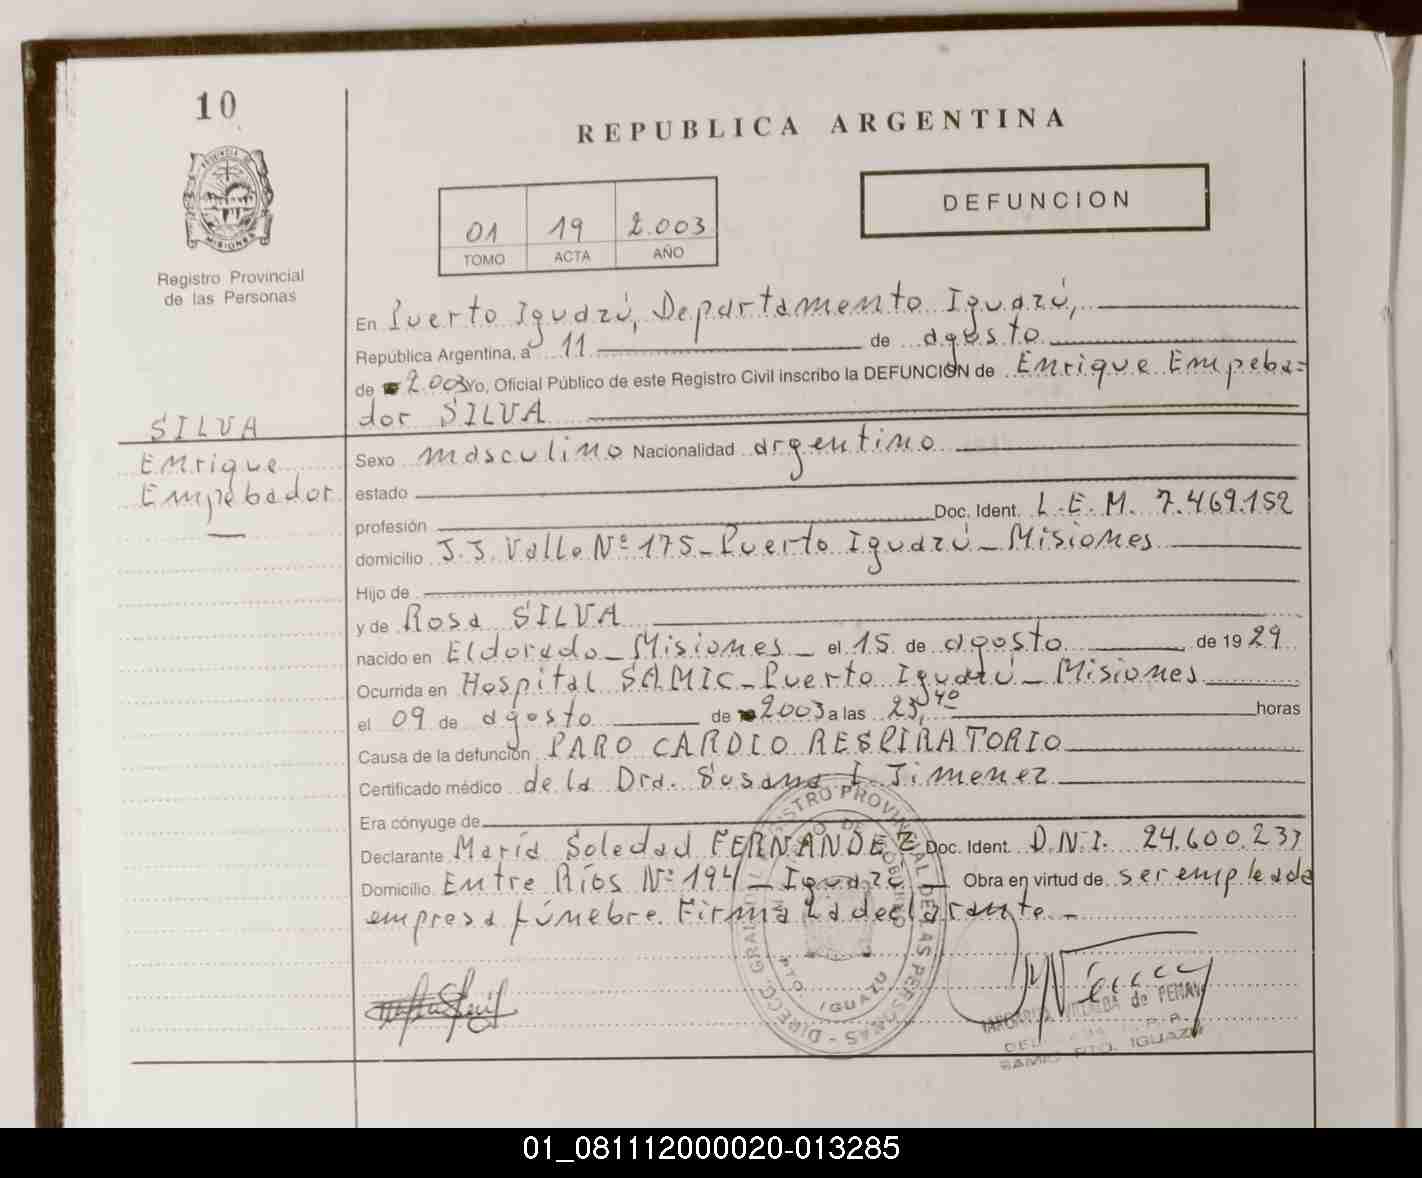 10
REPUBLICA ARGENTINA
DEFUNCION
01 19 2.003
TOMO ACTA AÑO
PROVINCIA DE
MISIONES
Registro Provincial
de las Personas
En Puerto Iguazú, Departamento Iguazú,
República Argentina, a 11 de agosto
de 2.003 Yo, Oficial Público de este Registro Civil inscribo la DEFUNCIÓN de Enrique Empeba=
dor SILVA
SILVA
Enrique
Empebador
Sexo masculino Nacionalidad argentino
estado
profesión Doc. Ident. L.E.M. 7.469.152
domicilio J.J. Valle Nº 175 - Puerto Iguazú - Misiones
Hijo de
y de Rosa SILVA
nacido en Eldorado - Misiones - el 15 de agosto de 1929
Ocurrida en Hospital SAMIC - Puerto Iguazú - Misiones
el 09 de agosto de 2003 a las 23,40 horas
Causa de la defunción PARO CARDIO RESPIRATORIO
Certificado médico de la Dra. Susana I. Jimenez
Era cónyuge de
Declarante María Soledad FERNANDEZ Doc. Ident. D.N.I. 24.600.233
Domicilio Entre Ríos Nº 194 - Iguazú - Obra en virtud de ser empleada
empresa fúnebre. Firma La declarante. -
DIRECC. GRAL. DEL REGISTRO PROVINCIAL DE LAS PERSONAS
PTO. IGUAZU
MARGARITA VILLALBA de
SAMIC PTO. IGUAZU
01_081112000020-013285